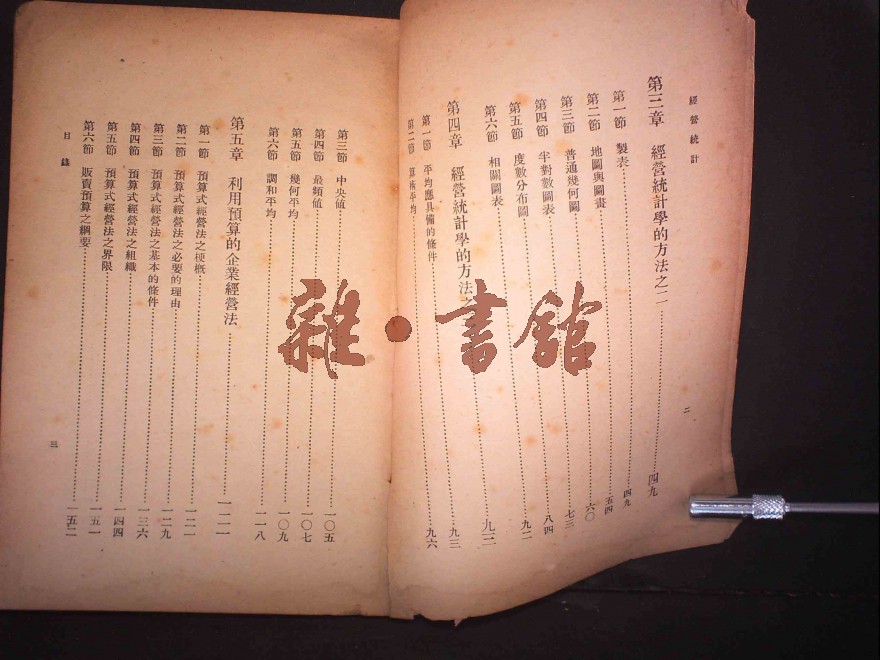 經營統計
第三章 經營統計學的方法之二 四九
第一節 製表 四九
第二節 地圖與圖畫 五四
第三節 普通幾何圖 六〇
第四節 半對數圖表 七三
第五節 度數分布圖 八四
第六節 相關圖表 九二
第四章 經營統計學的方法之 九三
第一節 平均應具備的條件 九三
第二節 算術平均 九六
二
第三節 中央値 一〇五
第四節 最頻値 一〇七
第五節 幾何平均 一〇九
第六節 調和平均 一一八
第五章 利用預算的企業經營法 一二一
第一節 預算式經營法之梗槪 一二一
第二節 預算式經營法之必要的理由 一二九
第三節 預算式經營法之基本的條件 一三六
第四節 預算式經營法之組織 一四四
第五節 預算式經營法之界限 一五一
第六節 販賣預算之綱要 一五二
目錄
三
雜·書館